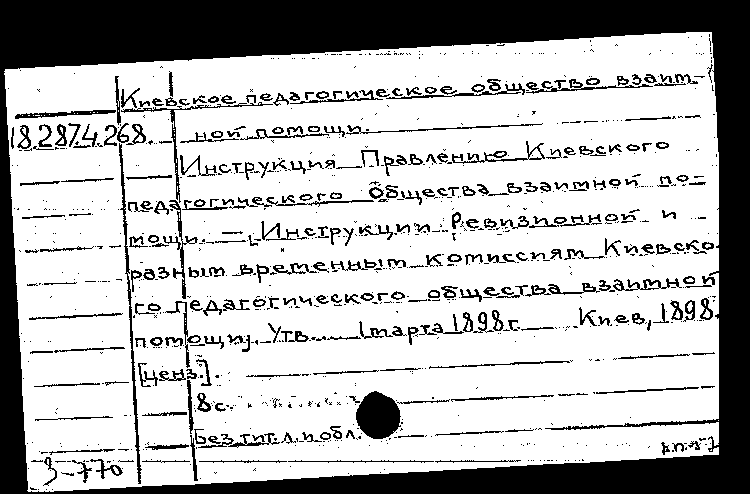 Киевское педагогическое общество взаим-
18.287.4.268. ной помощи.
Инструкция Правлению Киевского
педагогического общества взаимной по-
мощи. — Инструкции Ревизионной и
разным временным комиссиям Киевско-
го педагогического общества взаимной
помощи]. Утв.... 1 марта 1898 г. Киев, 1898.
[ценз.].
8 с.
Без тит. л. и обл.
3-770